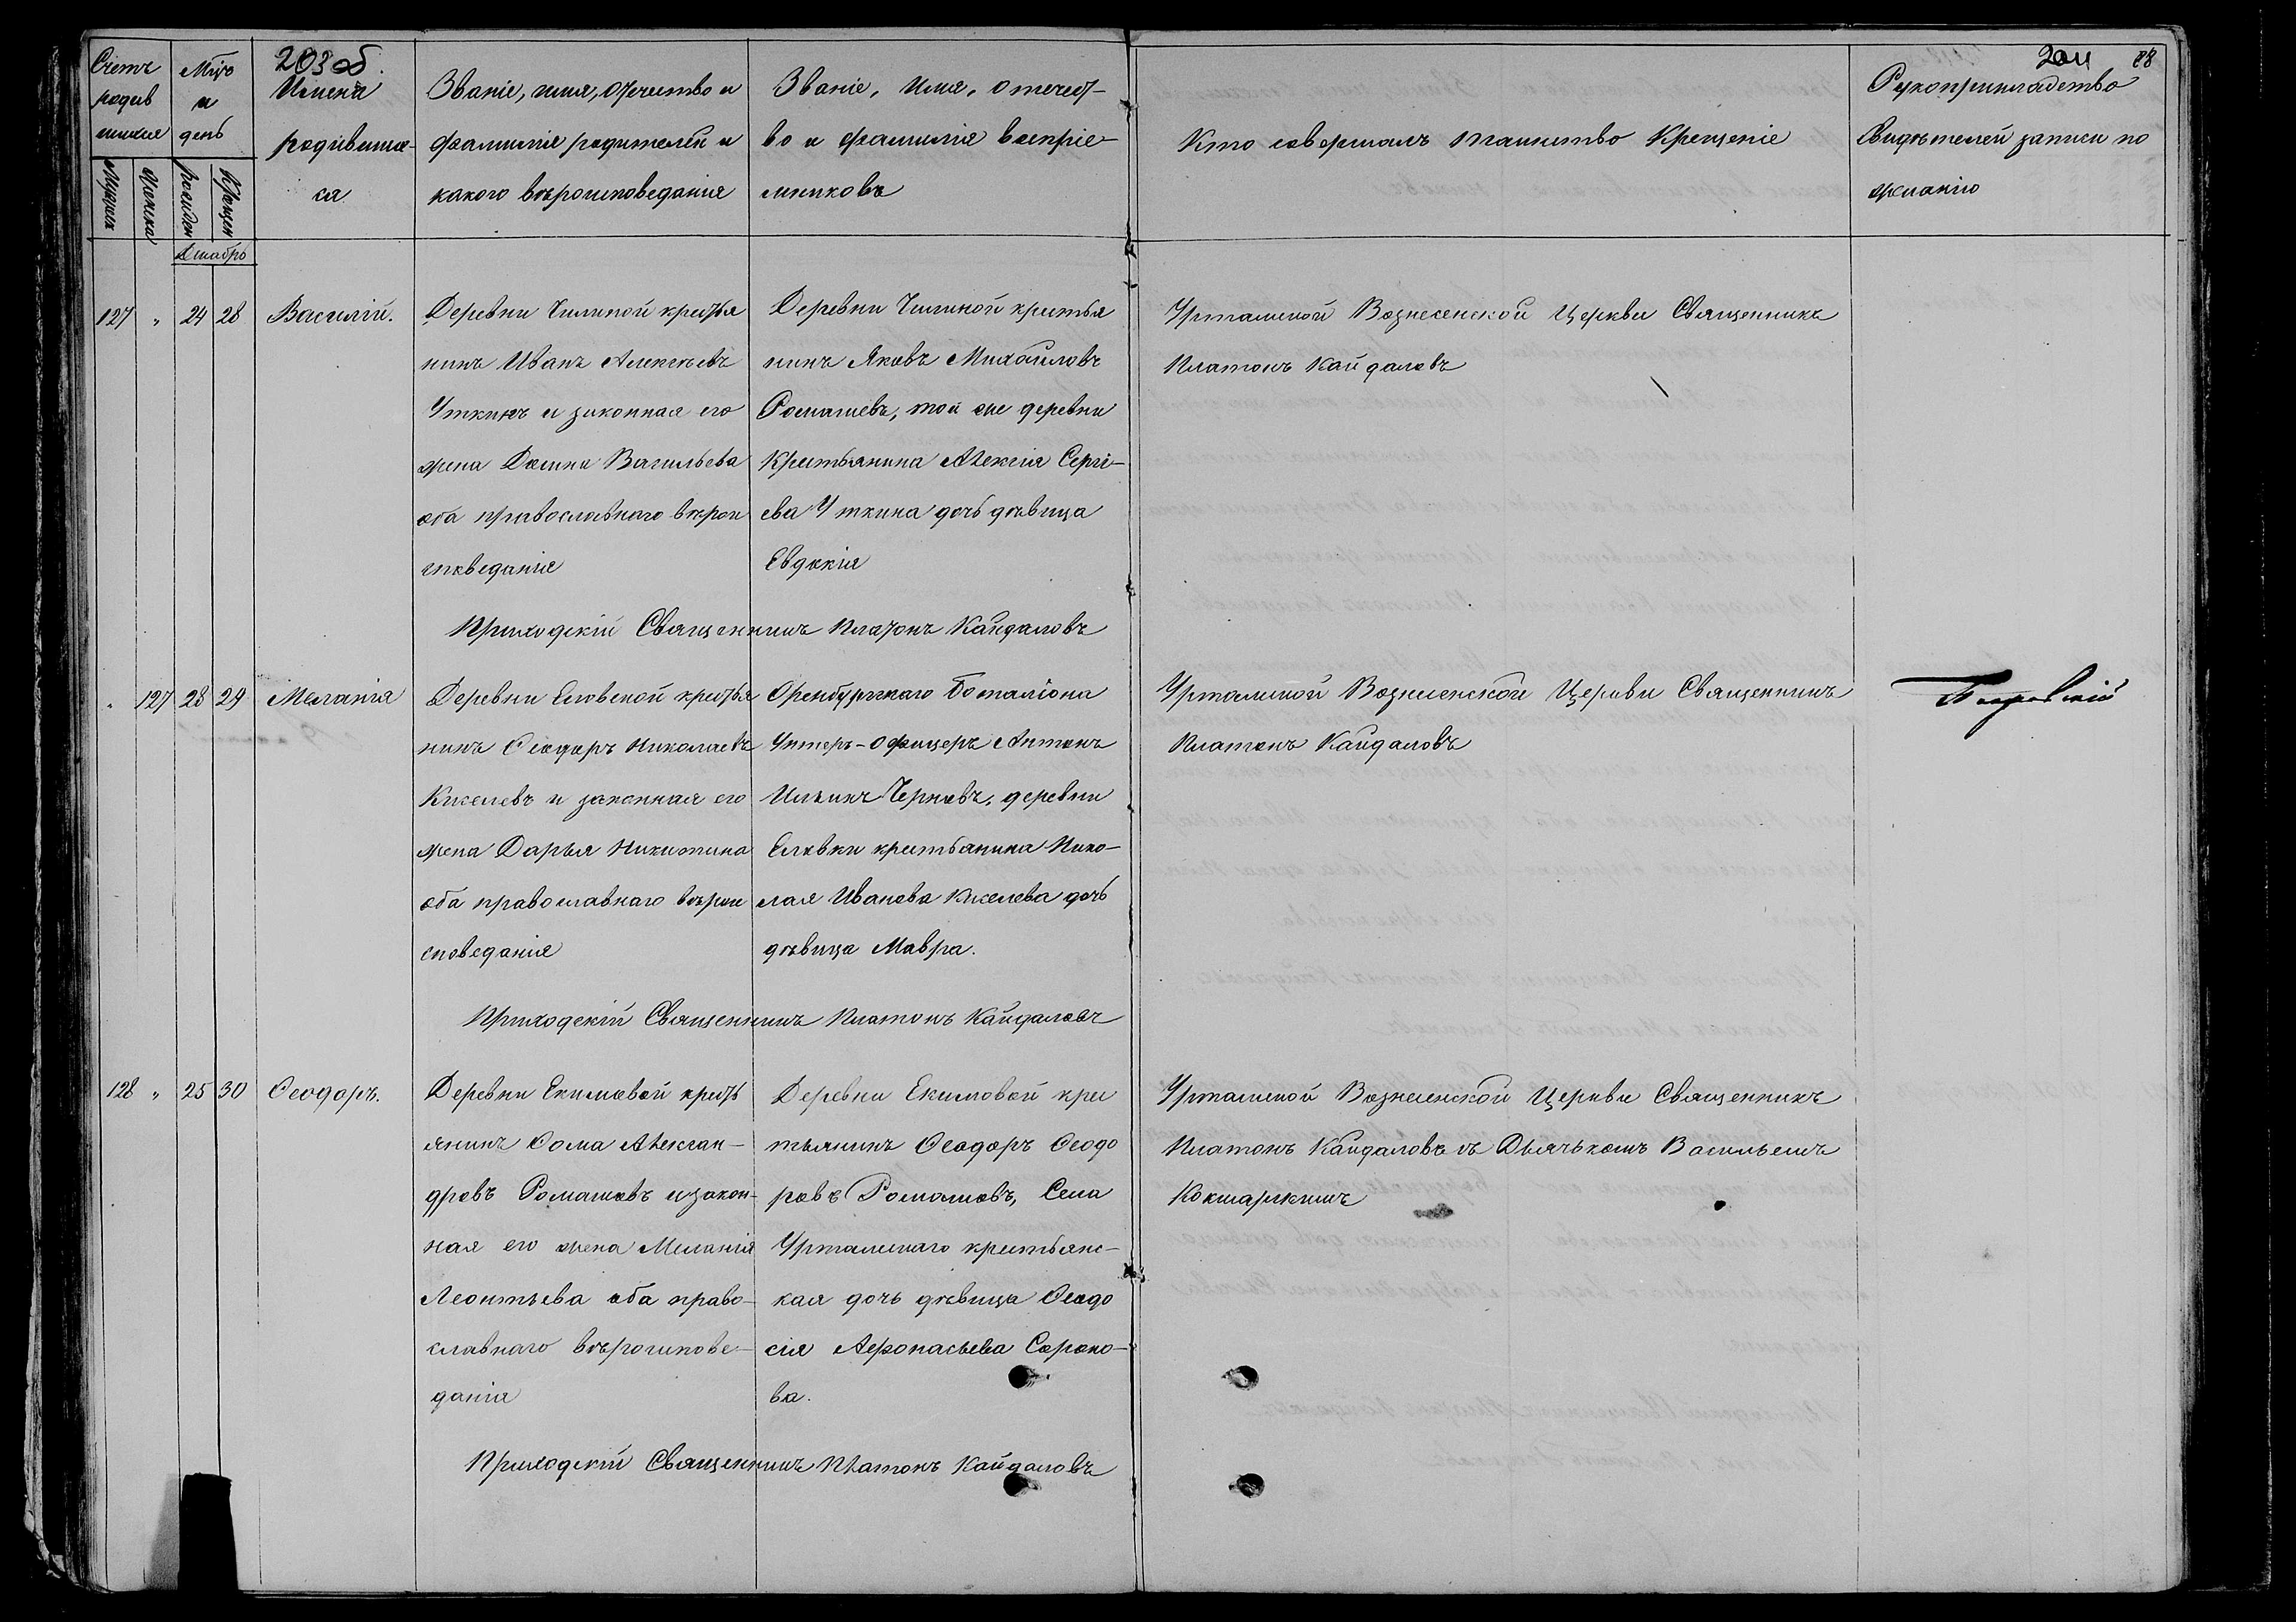 203об.
204 88
Счетъ родив шихся
Мѣс. и день
Имена родившихся
Званіе, имя, отчество и
фамилія родителей и
какого вѣроисповеданія
Званіе, имя, отечест-
во и фамилія воспріе-
мниковъ
Кто совершалъ таинство Крещеніе
Рукоприкладство
свидѣтелей записи по
желанію
Мужеска
Женска
рожден
Крещен
Декабрь
127 " 24 28 Василій.
Деревни Чилиной крестья
нинъ Иванъ Алексѣевъ
Уткинъ и законная его
жена Домна Васильева
оба православнаго вѣрои
споведанія
Деревни Чилиной крестья
нинъ Яковъ Михайловъ
Ромашевъ, той же деревни
крестьянина Алексія Сергі-
ева Уткина дочь дѣвица
Евдокія
Уртамской Вознесенской Церкви Священникъ
Платонъ Кайдаловъ
Приходскій Священникъ Платонъ Кайдаловъ
" 127 28 29 Меланія
Деревни Еловской крестья
нинъ Ѳеодоръ Николаевъ
Киселевъ и законная его
жена Дарья Никитина
оба православнаго вѣрои
споведанія
Оренбургскаго Баталіона
Унтеръ-офицеръ Антонъ
Ильинъ Черновъ, деревни
Еловки крестьянина Нико-
лая Иванова Киселева дочь
дѣвица Мавра.
Уртамской Вознесенской Церкви Священникъ
Платонъ Кайдаловъ
Приходскій Священникъ Платонъ Кайдаловъ
128 " 25 30 Ѳеодоръ.
Деревни Екимовой кресть
янинъ Ѳома Алексан-
дровъ Ромашовъ и закон-
ная его жена Меланія
Леонтьева оба право-
славнаго вѣроиспове-
данія
Деревни Екимовой крес
тьянинъ Ѳеодоръ Ѳеодо
ровъ Ромашовъ, Села
Уртамскаго крестьянс-
кая дочь дѣвица Ѳеодо
сія Афонасьева Сороко-
ва.
Уртамской Вознесенской Церкви Священникъ
Платонъ Кайдаловъ съ Дьячькомъ Васильемъ
Кокшарскимъ
Приходскій Священникъ Платонъ Кайдаловъ